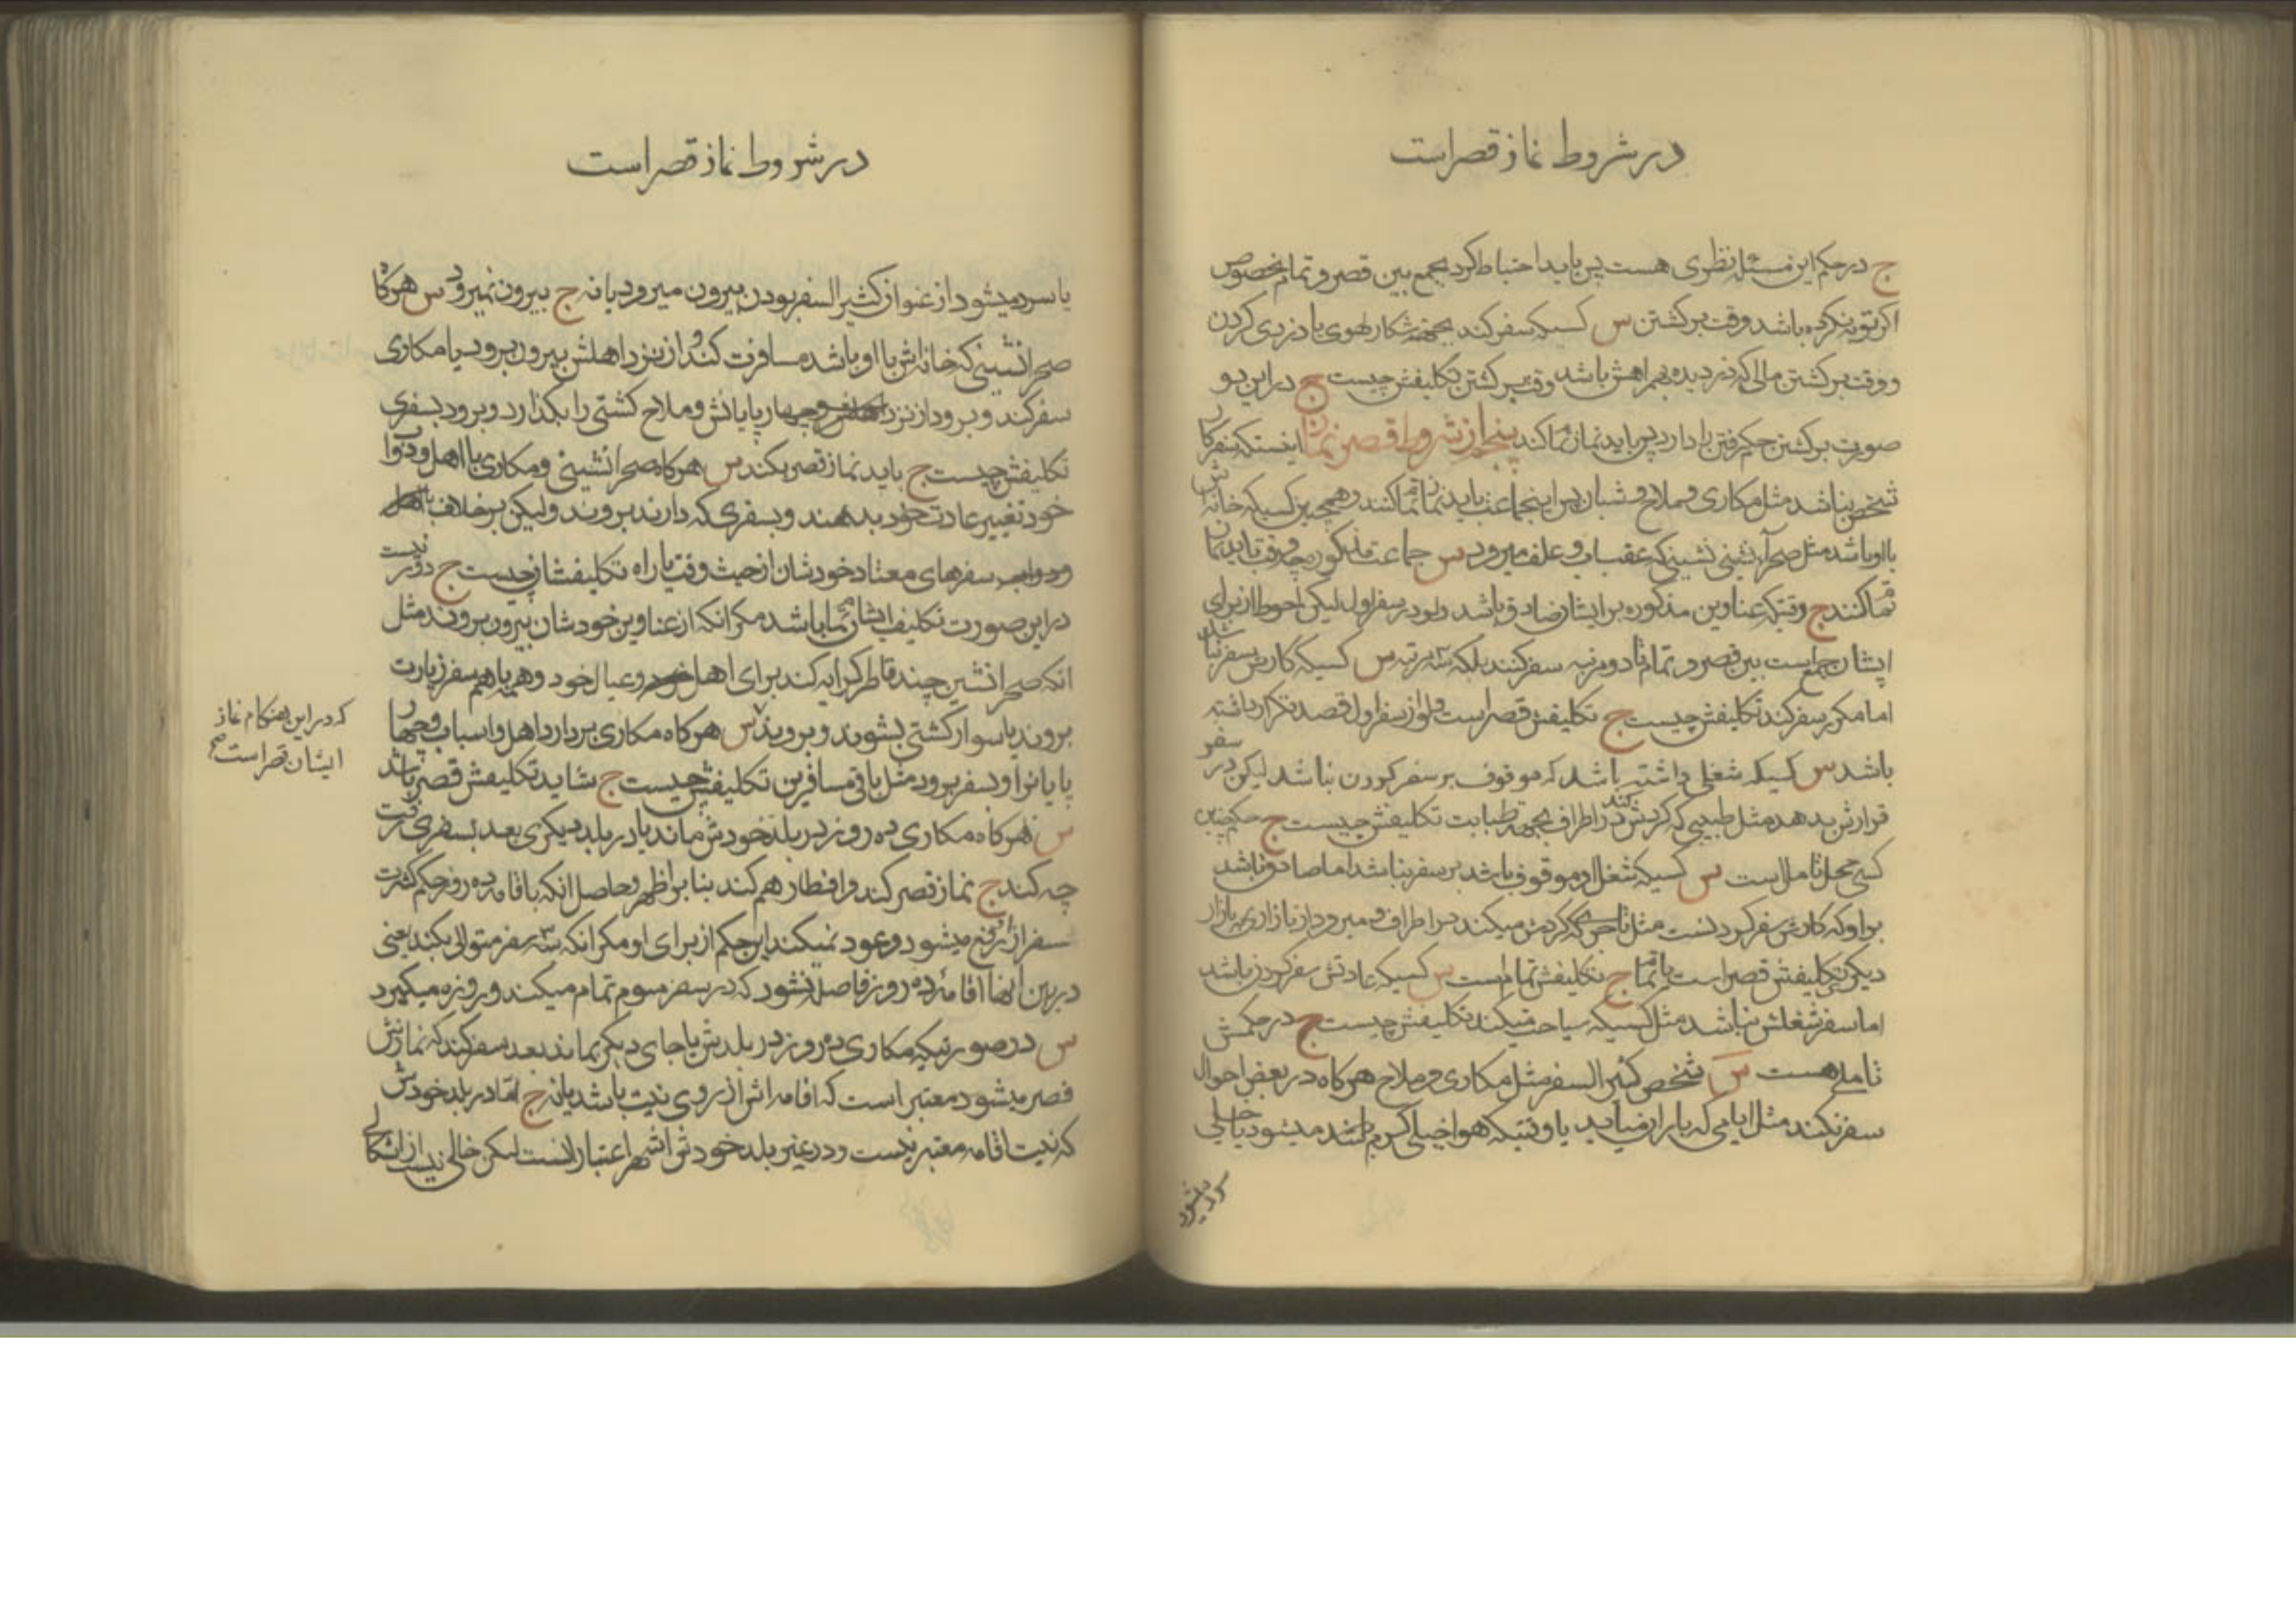 در شروط نماز قصر است
ج در حکم این مسئله نظری هست پس باید احتیاط کرد بجمع بین قصر و تمام بخصوص
اکر توبه نکرده باشد وقت برکشتن س کسیکه سفر کند بجهة شکار لهوی یا دزدی کردن
و وقت برکشتن مالی که دزدیده بهمراهش باشد وقت برکشتن تکلیفش چیست ج در این دو
صورت برکشتن حکم رفتن را دارد پس باید نماز تمام کند پنجم از شروط قصر نماز اینستکه سفر کار
شخص نباشد مثل مکاری و ملاح و شبان پس اینجماعت باید نماز تمام کنند و همچنین کسیکه خانه‌اش
با او باشد مثل صحرا نشینی که عقب اب و علف میرود س جماعت مذکوره چه وقت باید نماز
تمام کنند ج وقتیکه عناوین مذکوره بر ایشان صادق باشد ولو در سفر اول لیکن احوط از برای
ایشان جمع است بین قصر و تمام تا دو مرتبه سفر کنند بلکه سه مرتبه س کسیکه کارش سفر نباشد
اما مکرر سفر کند تکلیفش چیست ج تکلیفش قصر است ولو از سفر اول قصد تکرار داشته
باشد س کسیکه شغلی داشته باشد که موقوف بر سفر کردن نباشد لیکن در سفر
قرارش بدهد مثل طبیبی که کردش کند در اطراف بجهة طبابت تکلیفش چیست ج حکم چنین
کسی محل تامل است س کسیکه شغل او موقوف باشد بر سفر نباشد اما صادق باشد
بر او که کارش سفر کردنست مثل تاجری که کردش میکند در اطراف و میرود از بازاری ببازار
دیکر تکلیفش قصر است یا تمام ج تکلیفش تمام است س کسیکه عادتش سفر کردن باشد
اما سفر شغلش نباشد مثل کسیکه سیاحت میکند تکلیفش چیست ج در حکمش
تاملی هست س شخص کثیر السفر مثل مکاری و ملاح هرکاه در بعض احوال
سفر نکند مثل ایامی که باران میاید یا وقتیکه هوا خیلی کرم باشد میشود یا خیلی
سرد میشود
در شروط نماز قصر است
یا سرد میشود از عنوان کثیر السفر بودن بیرون میرود یا نه ج بیرون نمیرود س هرکاه
صحرا نشینی که خانه‌اش با او باشد مسافرت کند و از نزد اهلش بیرون برود یا مکاری
سفر کند و برود از نزد چهارپایانش و ملاح کشتی را بکذارد و برود بسفری
تکلیفش چیست ج باید نماز قصر بکند س هرکاه صحرا نشینی و مکاری با اهل و دواب
خود تغییر عادت خود بدهند و بسفری که دارند بروند ولیکن بر خلاف
سفرهای معتاد خودشان از حیث وقت یا راه تکلیفشان چیست ج دور نیست
در این صورت تکلیف ایشان تمام باشد مکر انکه از عناوین خودشان بیرون بروند مثل
انکه صحرا نشین چند قاطر کرایه کند برای اهل و عیال خود و همه باهم بسفر زیارت
بروند یا سوار کشتی بشوند و بروند س هرکاه مکاری بردارد اهل و اسباب و چهار
پایان او و بسفر برود مثل باقی مسافرین تکلیفش چیست ج شاید تکلیفش قصر باشد
س هرکاه مکاری ده روز در بلد خودش ماند یا در بلد دیکری بعد بسفری رفت
چه کند ج نماز قصر کند و افطار هم کند بنا بر اظهر و حاصل انکه باقامه ده روز حکم کثرت
سفر از او رفع میشود و عود نمیکند این حکم از برای او مکر انکه سه سفر متوالی بکند یعنی
در بین انها اقامه ده روز فاصله نشود که در سفر سوم تمام میکند و روزه میکیرد
س در صورتیکه مکاری ده روز در بلدش یا جای دیکر بماند بعد سفر کند که نمازش
قصر میشود معتبر است که اقامه‌اش از روی نیت باشد یا نه ج اما در بلد خودش
که نیت اقامه معتبر نیست و در غیر بلد خودش اشهر اعتبار انست لیکن خالی نیست از اشکالی
که در این هنکام نماز
ایشان قصر است صح